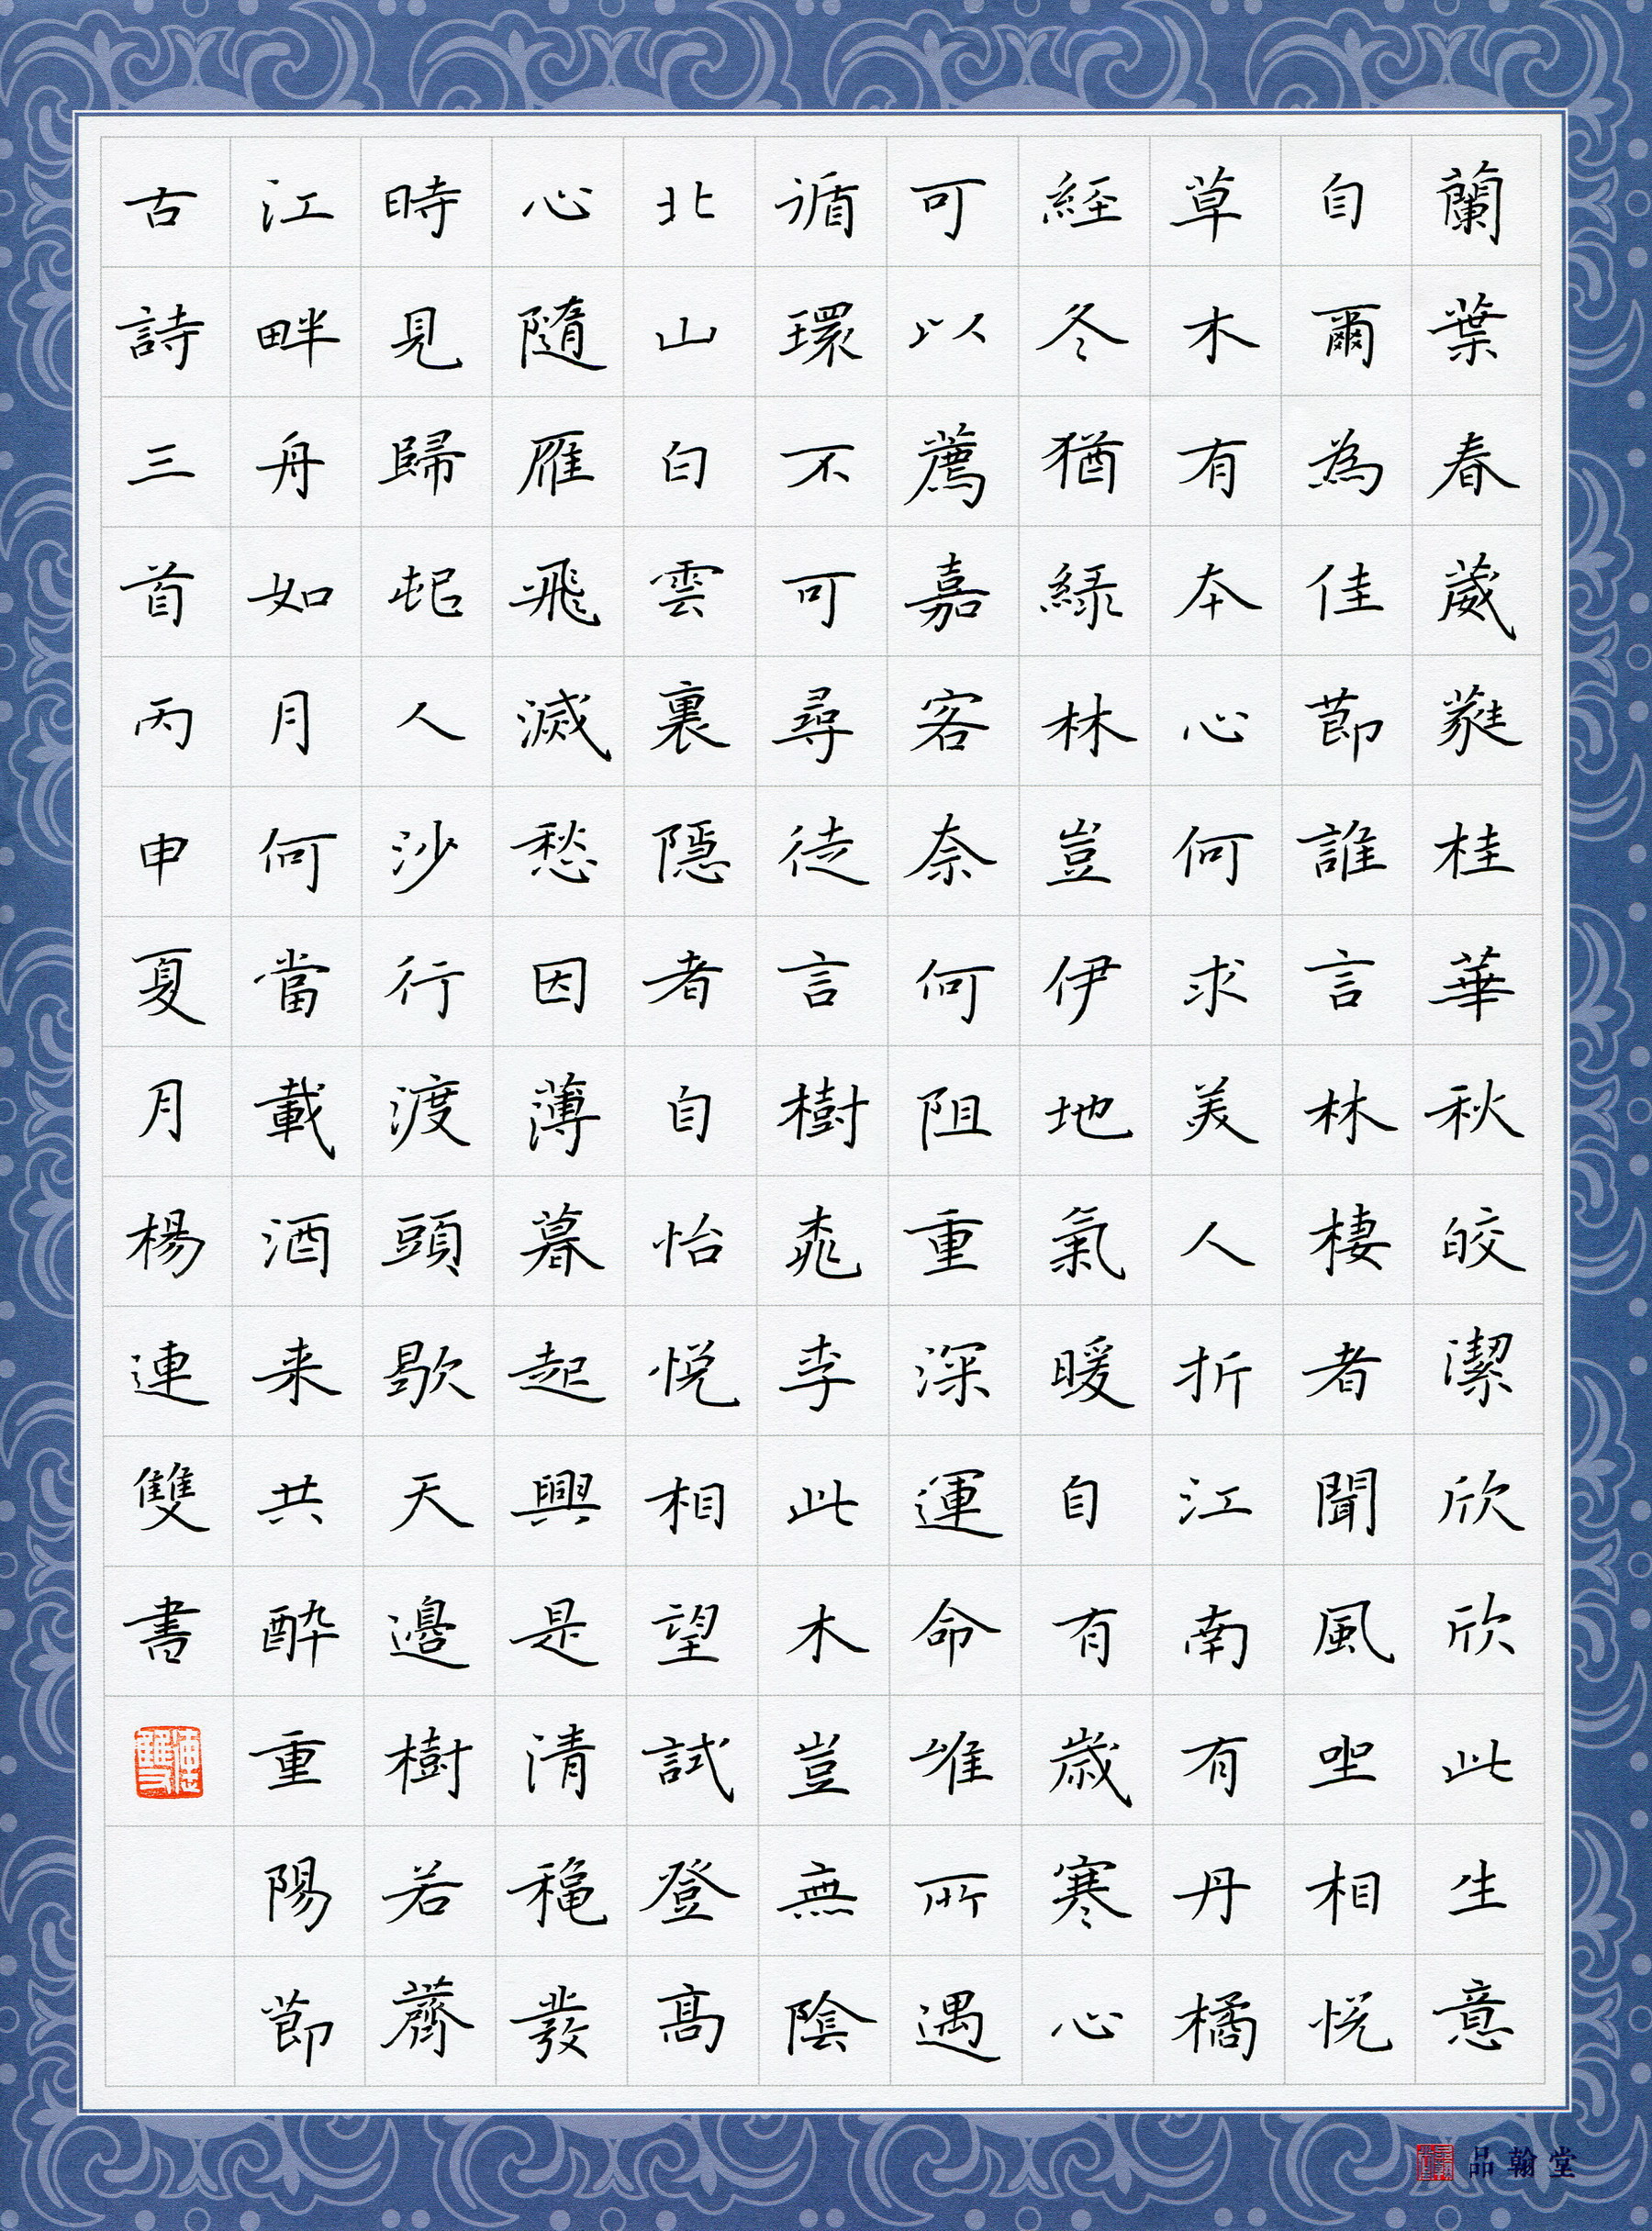 蘭葉春葳蕤桂華秋皎潔欣欣此生意
自爾為佳節誰言林棲者聞風坐相悅
草木有本心何求美人折江南有丹橘
經冬猶綠林豈伊地氣暖自有歲寒心
可以薦嘉客奈何阻重深運命唯所遇
循環不可尋徒言樹桃李此木豈無陰
北山白雲裏隱者自怡悅相望試登高
心隨雁飛滅愁因薄暮起興是清秋發
時見歸邨人沙行渡頭歇天邊樹若薺
江畔舟如月何當載酒来共醉重陽節
古詩三首丙申夏月楊連雙書
連雙
品翰堂